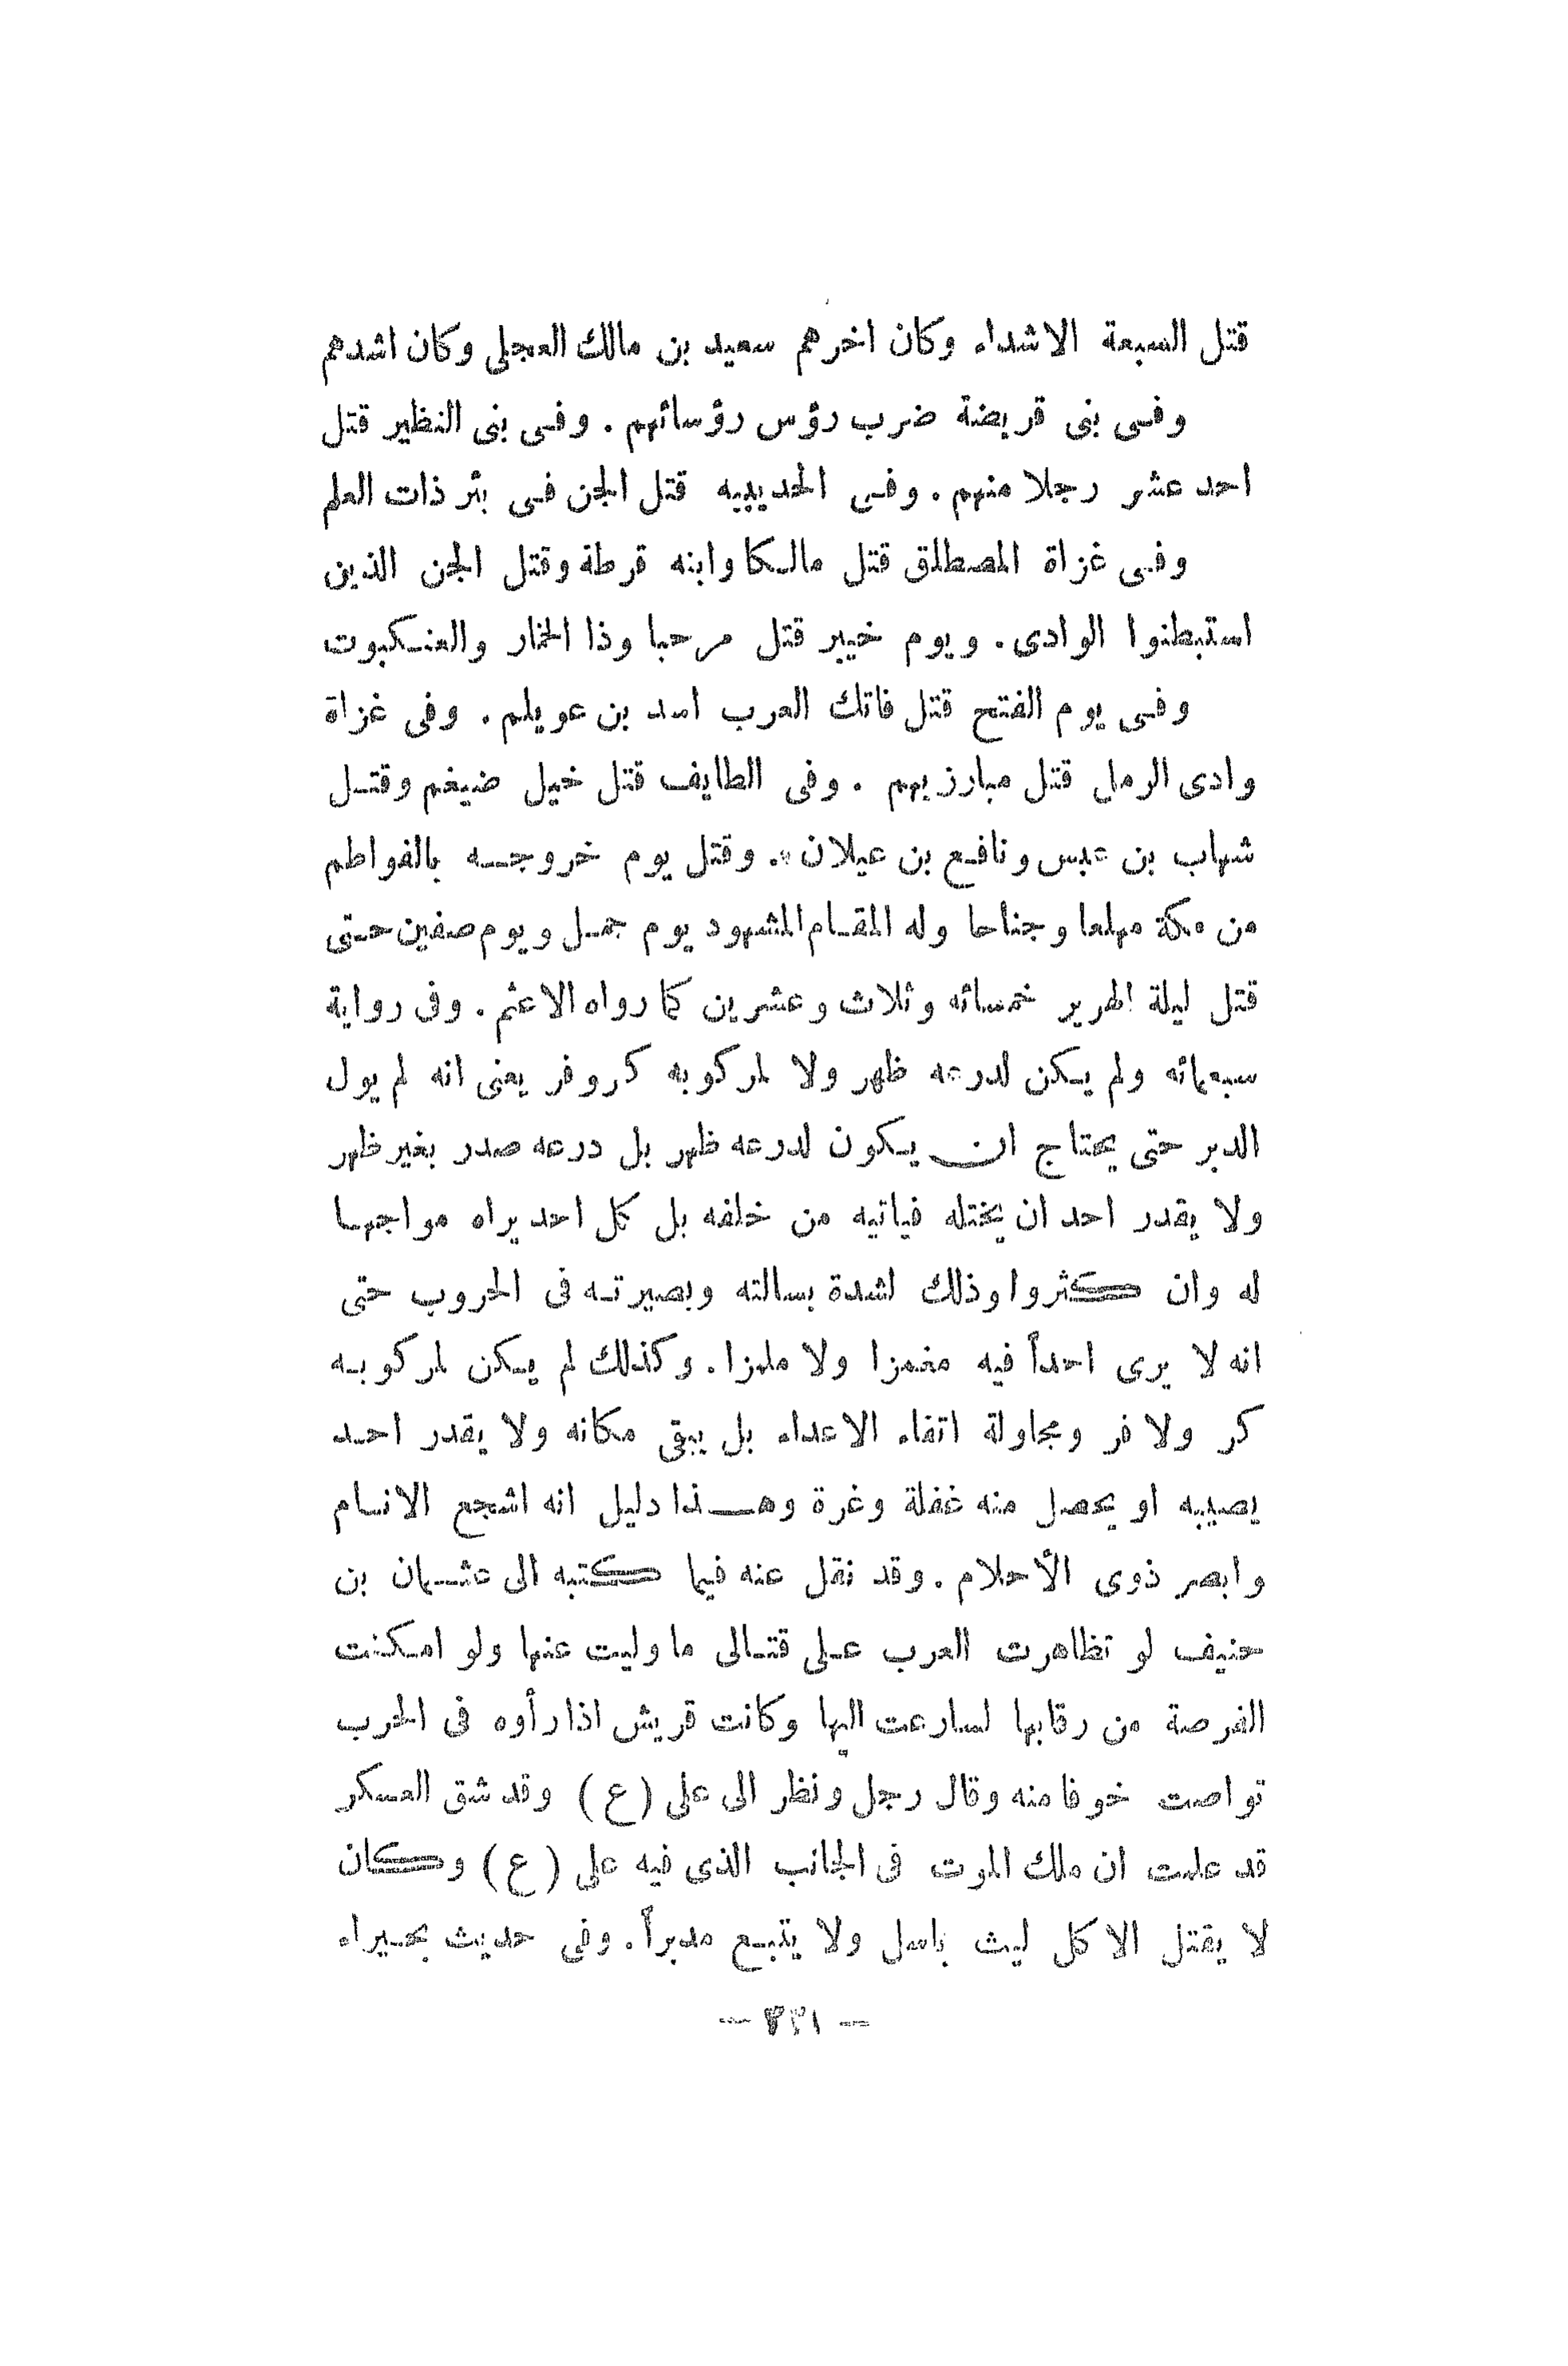 قتل السبعة الاشداء وكان اخرهم سعيد بن مالك العجلى وكان اشدهم
وفى بنى قريضة ضرب رؤس رؤسائهم . وفى بنى النظير قتل
احد عشر رجلا منهم . وفى الحديبيه قتل الجن فى بئر ذات العلم
وفى غزاة المصطلق قتل مالكا وابنه قرطة وقتل الجن الذين
استبطنوا الوادى . ويوم خيبر قتل مرحبا وذا الخمار والعنكبوت
وفى يوم الفتح قتل فاتك العرب اسد بن عويلم . وفى غزاة
وادى الرمل قتل مبارزيهم . وفى الطايف قتل خيل ضيغم وقتل
شهاب بن عبس ونافع بن عيلان . وقتل يوم خروجه بالفواطم
من مكة مهلعا وجناحا وله المقام المشهود يوم جمل ويوم صفين حتى
قتل ليلة الهرير خمسائه وثلاث وعشرين كما رواه الاعثم . وفى رواية
سبعمائه ولم يكن لدرعه ظهر ولا لمركوبه كر وفر يعنى انه لم يول
الدبر حتى يحتاج ان يكون لدرعه ظهر بل درعه صدر بغير ظهر
ولا يقدر احد ان يختله فياتيه من خلفه بل كل احد يراه مواجها
له وان كثروا وذلك لشدة بسالته وبصيرته فى الحروب حتى
انه لا يرى احداً فيه مغمزا ولا ملمزا . وكذلك لم يكن لمركوبه
كر ولا فر ومجاولة اتفاء الاعداء بل يبقى مكانه ولا يقدر احد
يصيبه او يحصل منه غفلة وغرة وهذا دليل انه اشجع الانام
وابصر ذوى الأحلام . وقد نقل عنه فيما كتبه الى عثمان بن
حنيف لو تظاهرت العرب على قتالى ما وليت عنها ولو امكنت
الفرصة من رقابها لسارعت اليها وكانت قريش اذا رأوه فى الحرب
تواصت خوفا منه وقال رجل ونظر الى على (ع) وقد شق العسكر
قد علمت ان ملك الموت فى الجانب الذى فيه على (ع) وكان
لا يقتل الا كل ليث باسل ولا يتبع مدبراً . وفى حديث بحيراء